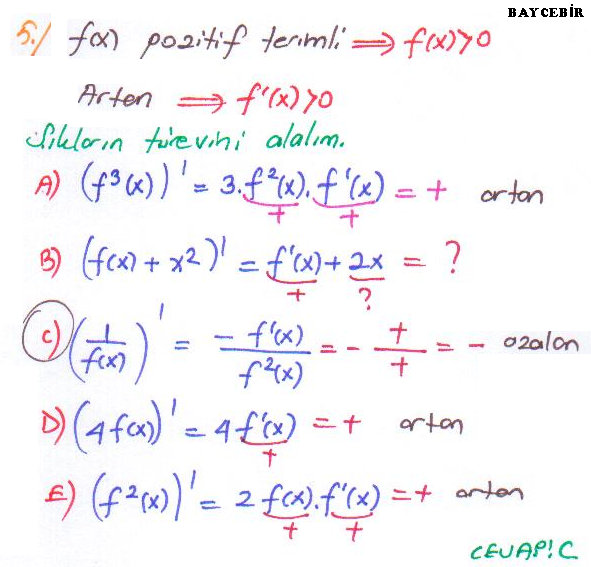 BAYCEBİR
5./ f(x) pozitif terimli ⟹ f(x)>0
Artan ⟹ f'(x)>0
Şıkların türevini alalım.
A) (f³(x))' = 3.f²(x).f'(x) = + artan
+ +
B) (f(x) + x²)' = f'(x) + 2x = ?
+ ?
C) (1/f(x))' = -f'(x)/f²(x) = - +/+ = - azalan
D) (4f(x))' = 4f'(x) = + artan
+
E) (f²(x))' = 2f(x).f'(x) = + artan
+ +
CEVAP: C